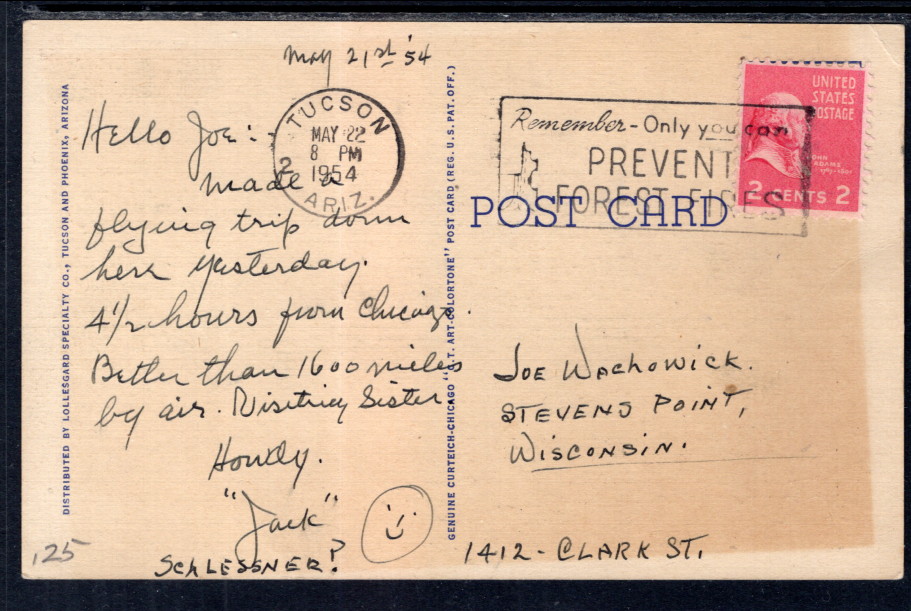 May 21st '54
Hello Joe:-
Made a
flying trip down
here yesterday.
4 1/2 hours from Chicago.
Better than 1600 miles
by air. Visiting Sister
Howdy.
"Jack"
SCHLESSNER?
.125
DISTRIBUTED BY LOLLESGARD SPECIALTY CO., TUCSON AND PHOENIX, ARIZONA
TUCSON
MAY 22
8 PM
1954
ARIZ.
2
GENUINE CURTEICH-CHICAGO "C.T. ART-COLORTONE" POST CARD (REG. U.S. PAT. OFF.)
Remember-Only you can
PREVENT
FOREST FIRES
POST CARD
UNITED
STATES
POSTAGE
JOHN
ADAMS
2 CENTS 2
JOE WACHOWICK.
STEVENS POINT,
WISCONSIN.
1412 - CLARK ST.